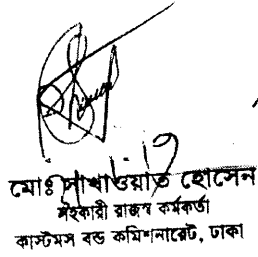 মোঃ সাখাওয়াত হোসেন
সহকারী রাজস্ব কর্মকর্তা
কাস্টমস বন্ড কমিশনারেট, ঢাকা